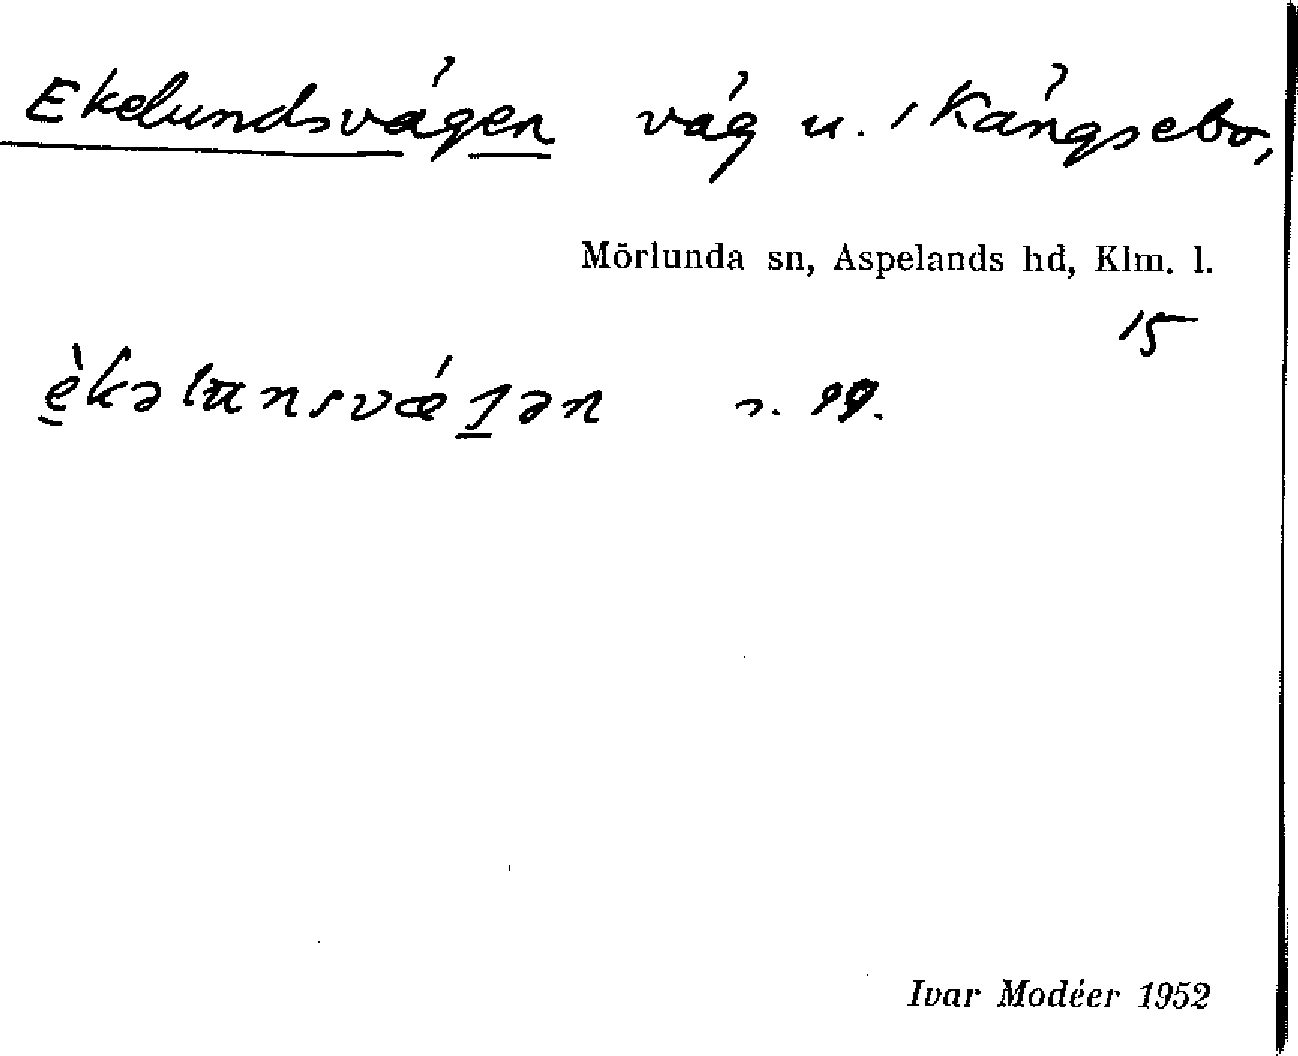 Ekelundsvägen väg u. Kängsebo,
Mörlunda sn, Aspelands hd, Klm. l.
15
èkəlunsvǽgən
Ivar Modéer 1952